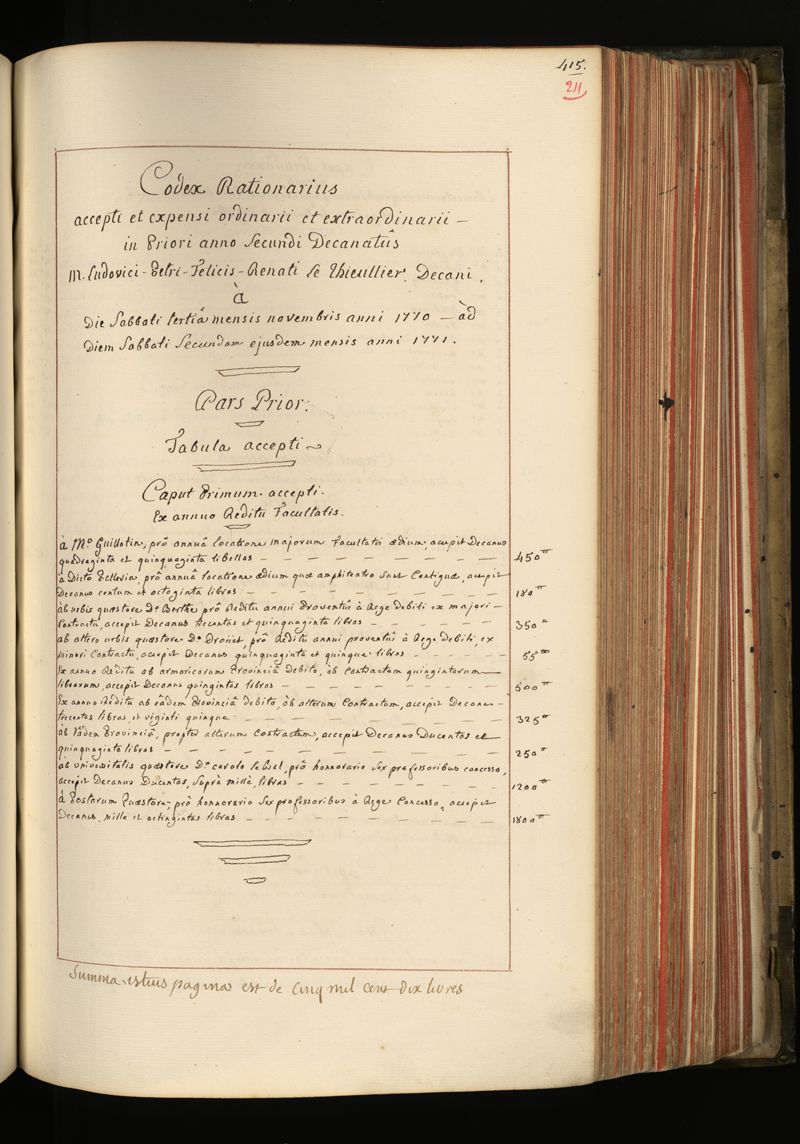 415.
211
Codex Rationarius
accepti et expensi ordinarii et extraordinarii –
in Priori anno Secundi Decanatûs
M. Ludovici-Petri-Felicis-Renati Le Thieullier, Decani,
à
Die Sabbati tertiâ mensis novembris anni 1770 – àd
Diem Sabbati Secundam ejusdem mensis anni 1771.
Pars Prior.
Tabula accepti
Caput Primum accepti.
Ex annuo Reditu Facultatis.
à M.o Guillotin, prô annuâ locatione majorum Facultatis ædium, accepit Decanus
quadraginta et quinquaginta libellas – – – – – – – 450 tt
à Dicto Pellerin, prô annuâ locatione ædium quæ amphiteatro sunt Contiguæ, accepit
Decanus centum et octoginta libras – – – – – – – 180 tt
àb urbis quæstore D.o Berthe prô Reditu annui Proventûs à Rege debiti ex majori –
Contractu, accepit Decanus trecentas et quinquaginta libras – – – – – 350 tt
ab altero urbis quæstore D.o Droüet, prô Reditu annui proventûs à Rege debiti, ex
minori Contractu, accepit Decanus quinquaginta et quinque libras – – – – – 55 tt
Ex annuo Reditu ab armoricorum Provinciâ Debito, ob Contractum quingintarum
librarum, accepit Decanus quingintas libras – – – – – – 500 tt
Ex annuo Reditu ab eâdem Provinciâ debito, òb alterum Contractum, accepit Decanus –
trecentas libras, et viginti quinque – – – – – – 325 tt
àb Eâdem Provinciâ, propter alterum Contractum, accepit Decanus Ducentas et
quinquaginta libras – – – – – – – – 250 tt
ab universitatis quæstore D.o carolo lebel, prô honnorario Sex professoribus concesso,
accepit Decanus Ducentas, suprà millè, libras – – – – – – 1200 tt
à Postarum Quæstore, prô honnorario Sex professoribus à Rege Concesso, accepit
Decanus, mille et octingintas libras – – – – – – – 1800 tt
Summa istius pagina est de Cinq mil cent dix livres